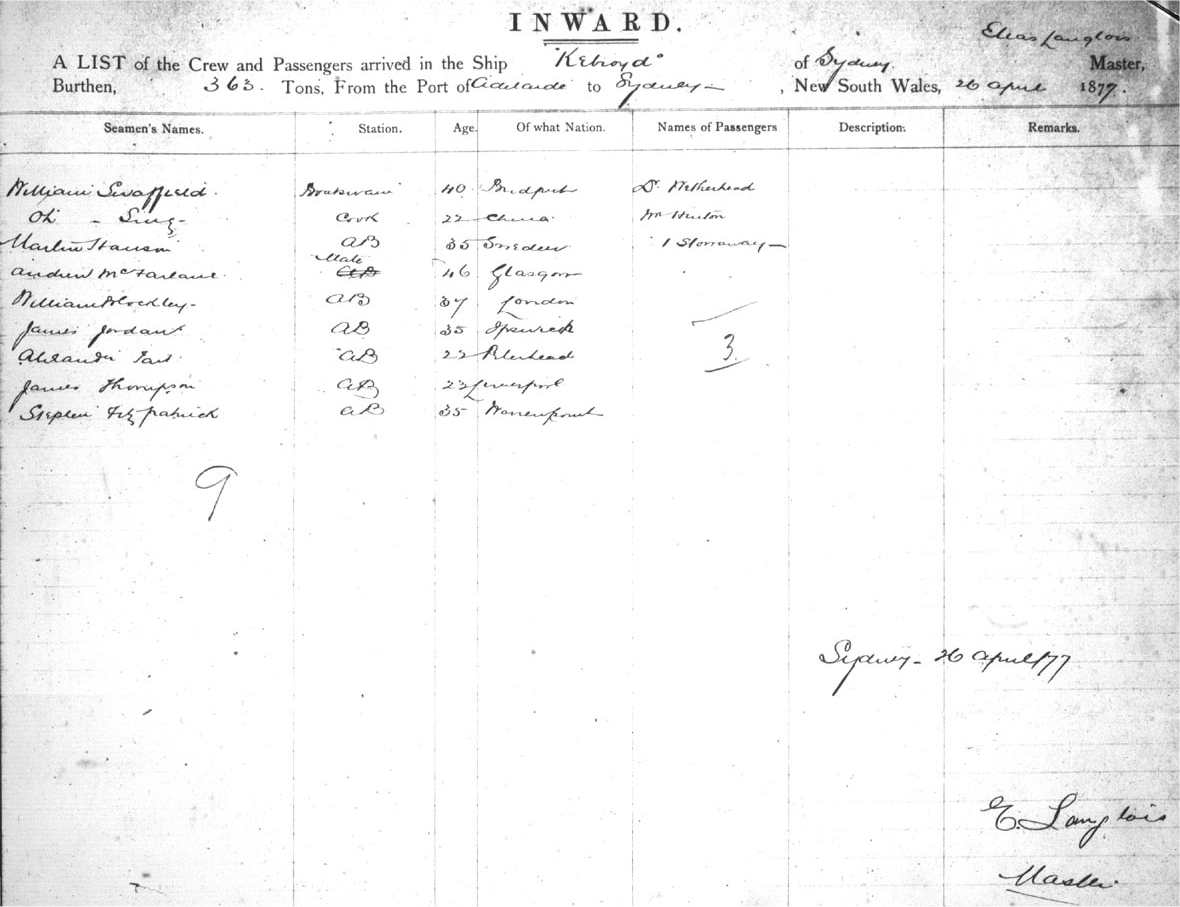 INWARD.
Elias Langlois
A LIST of the Crew and Passengers arrived in the Ship "Kelroyd" of Sydney Master,
Burthen, 363. Tons, From the Port of Adelaide to Sydney , New South Wales, 26 April 1877.
Seamen's Names. Station. Age. Of what Nation. Names of Passengers Description: Remarks.
William Swaffield. Boatswain 40 Bridport Dr Netherhead
Oh - Sing - Cook 22 China Mr
Martin Hansen AB 35 Sweden 1 Storraway
Mate
Andrew McFarlane. AB 46 Glasgow
William Blockley - AB 37 London
James Jordan AB 35 Ipswich
3.
Alexander AB 22 Peterhead
James Thompson AB 22 Liverpool
Stephen Fitzpatrick AB 35 Warrenpoint
9
Sydney - 26 April /77
E. Langlois
Master